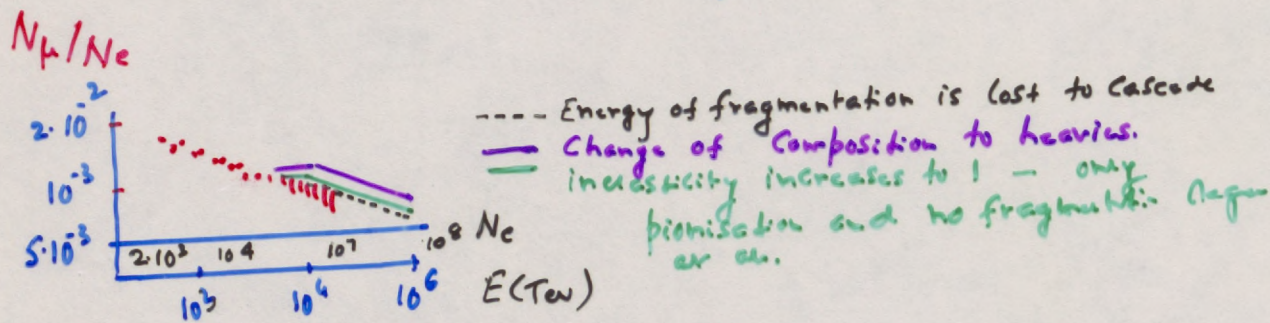 Nμ/Ne
2·10^-2
10^-3
5·10^-3
2·10^3 10^4 10^7 10^8 Ne
10^3 10^4 10^6 E(Tev)
---- Energy of fragmentation is lost to Cascade
Change of Composition to heavies.
inelasticity increases to 1 – only
pionisation and no fragmentation